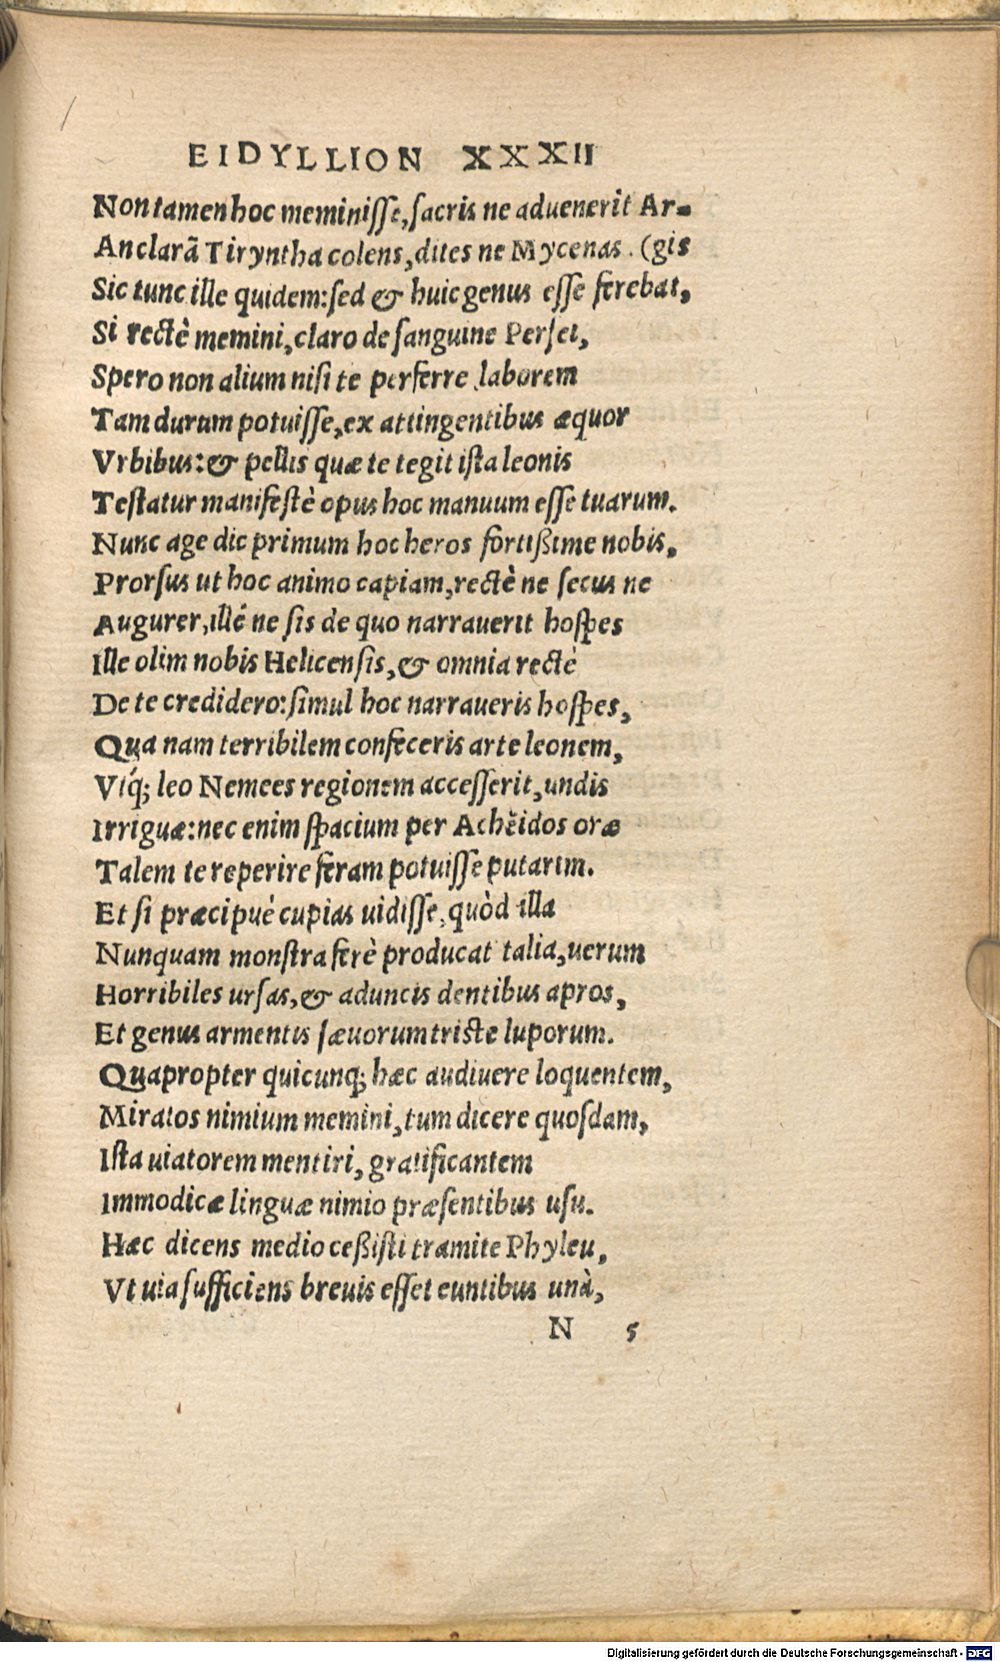 EIDYLLION XXXII
Non tamen hoc meminisse, sacris ne aduenerit Ar-
An clarã Tiryntha colens, dites ne Mycenas. (gis
Sic tunc ille quidem: sed & huic genus esse ferebat,
Si rectè memini, claro de sanguine Persei,
Spero non alium nisi te perferre laborem
Tam durum potuisse, ex attingentibus æquor
Vrbibus: & pellis quæ te tegit ista leonis
Testatur manifestè opus hoc manuum esse tuarum.
Nunc age dic primum hoc heros fortißime nobis,
Prorsus ut hoc animo capiam, rectè ne secus ne
Augurer, illé ne sis de quo narrauerit hospes
Ille olim nobis Helicensis, & omnia rectè
De te credidero: simul hoc narraueris hospes,
Qua nam terribilem confeceris arte leonem,
Vtq́; leo Nemees regionem accesserit, undis
Irriguæ: nec enim spacium per Achëidos oræ
Talem te reperire feram potuisse putarim.
Et si præcipuè cupias uidisse, quòd illa
Nunquam monstra ferè producat talia, uerum
Horribiles ursas, & aduncis dentibus apros,
Et genus armentis sæuorum triste luporum.
Quapropter quicunq; hæc audiuere loquentem,
Miratos nimium memini, tum dicere quosdam,
Ista uiatorem mentiri, gratificantem
Immodicæ linguæ nimio præsentibus usu.
Hæc dicens medio ceßisti tramite Phyleu,
Vt uia sufficiens breuis esset euntibus unà,
N 5
Digitalisierung gefördert durch die Deutsche Forschungsgemeinschaft - DFG